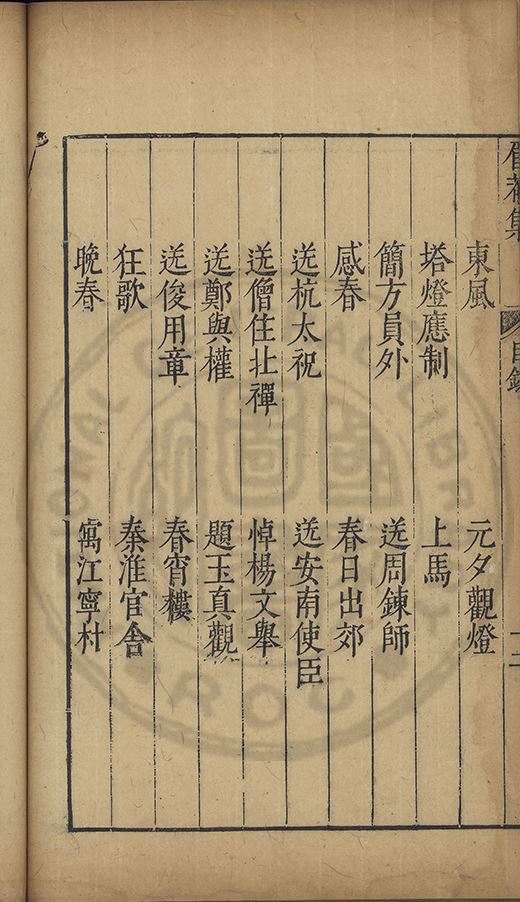 眉菴集 目錄
東風 元夕觀燈
塔燈應制 上馬
簡方員外 送周鍊師
感春 春日出郊
送杭太祝 送安南使臣
送僧住北禪 悼楊文舉
送鄭與權 題玉真觀
送俊用章 春宵樓
狂歌 秦淮官舍
晚春 寓江寧村